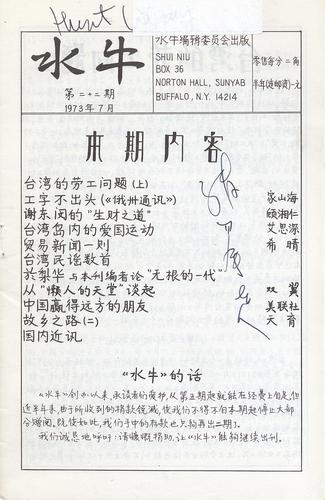 Hunt
水牛
第二十二期
1973年7月
水牛编辑委员会出版
SHUI NIU
BOX 36
NORTON HALL, SUNYAB
BUFFALO, N.Y. 14214
零售每分二角
半年(连邮资)一元
本期内容
台湾的劳工问题(上) 家山海
工字不出头(《俄州通讯》) 顾湘仁
谢东闵的"生财之道" 艾思深
台湾岛内的爱国运动 希晴
贸易新闻一则
台湾民谣数首
於梨华与本刊编者论"无根的一代"
从"懒人的天堂"谈起 双翼
中国赢得远方的朋友 美联社
故乡之路(二) 天育
国内近讯
《水牛》的话
《水牛》创办以来,承读者们爱护,从第五期起就能在经费上自足,但
近半年来,由于所收到的捐款锐减,使我们不得不自本期起停止大部
分赠阅。既使如此,我们手中的存款也只够再出二期。
我们诚恳地呼吁:请慷慨捐助,让《水牛》能够继续出刊。